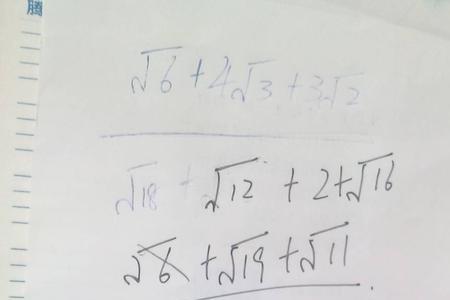 腾
√6 + 4√3 + 3√2
√18 + √12 + 2 + √16
√6 + √19 + √11